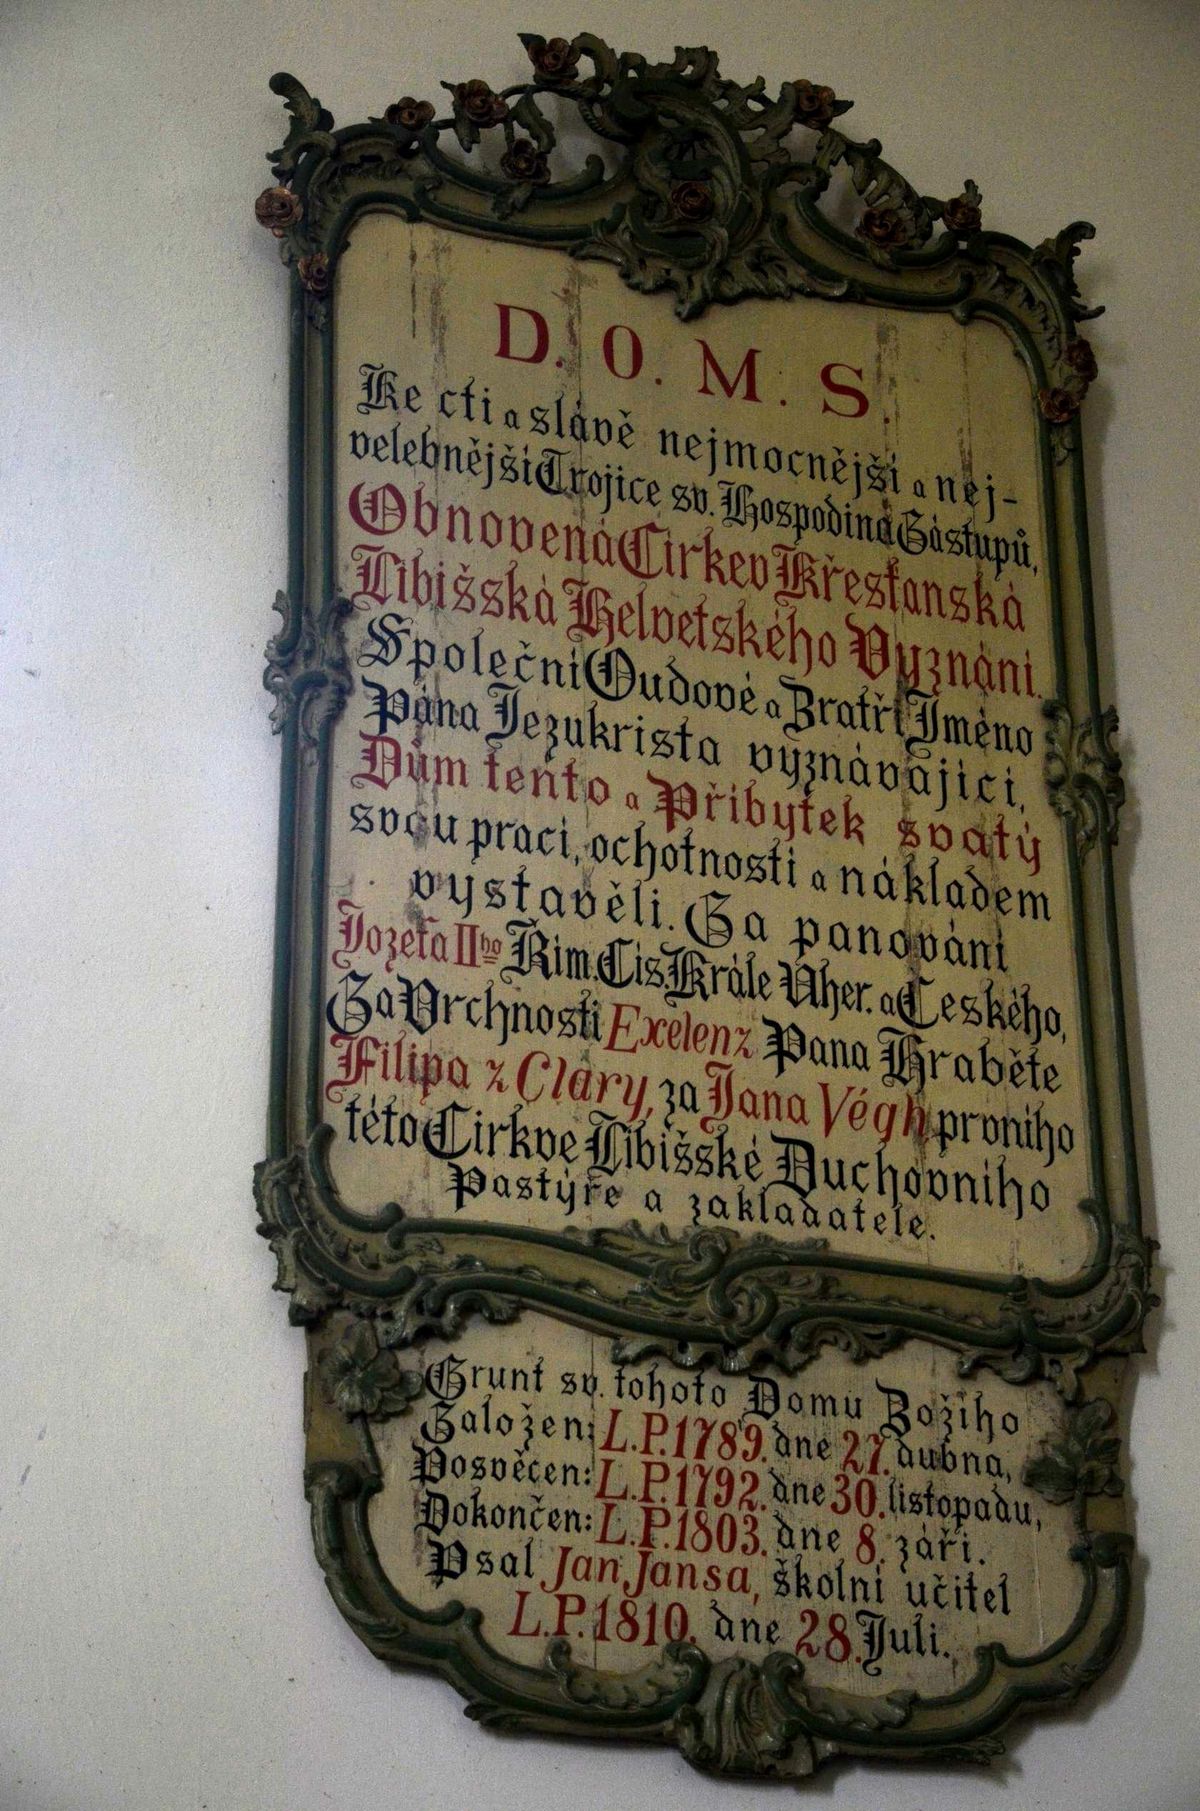 D. O. M. S.
Ke cti a slávě nejmocnější a nej-
velebnější Trojice sv. Hospodina Zástupů,
Obnovená Církev Křesťanská
Libišská Helvetského Vyznání.
Společní Oudové a Bratří Jméno
Pána Jezukrista vyznávající,
Dům tento a Přibytek svatý
svou prací, ochotností a nákladem
vystavěli. Za panování
Jozefa II ho Řím. Cís. Krále Uher. a Českého,
Za Vrchnosti Exelenz Pana Hraběte
Filipa z Cláry, za Jana Végh prvního
této Církve Libišské Duchovního
Pastýře a zakladatele.
Grunt sv. tohoto Domu Božího
Založen: L.P. 1789. dne 27. dubna,
Posvěcen: L.P. 1792. dne 30. listopadu,
Dokončen: L.P. 1803. dne 8. září.
Psal Jan Jansa, školní učitel
L.P. 1810. dne 28. Juli.